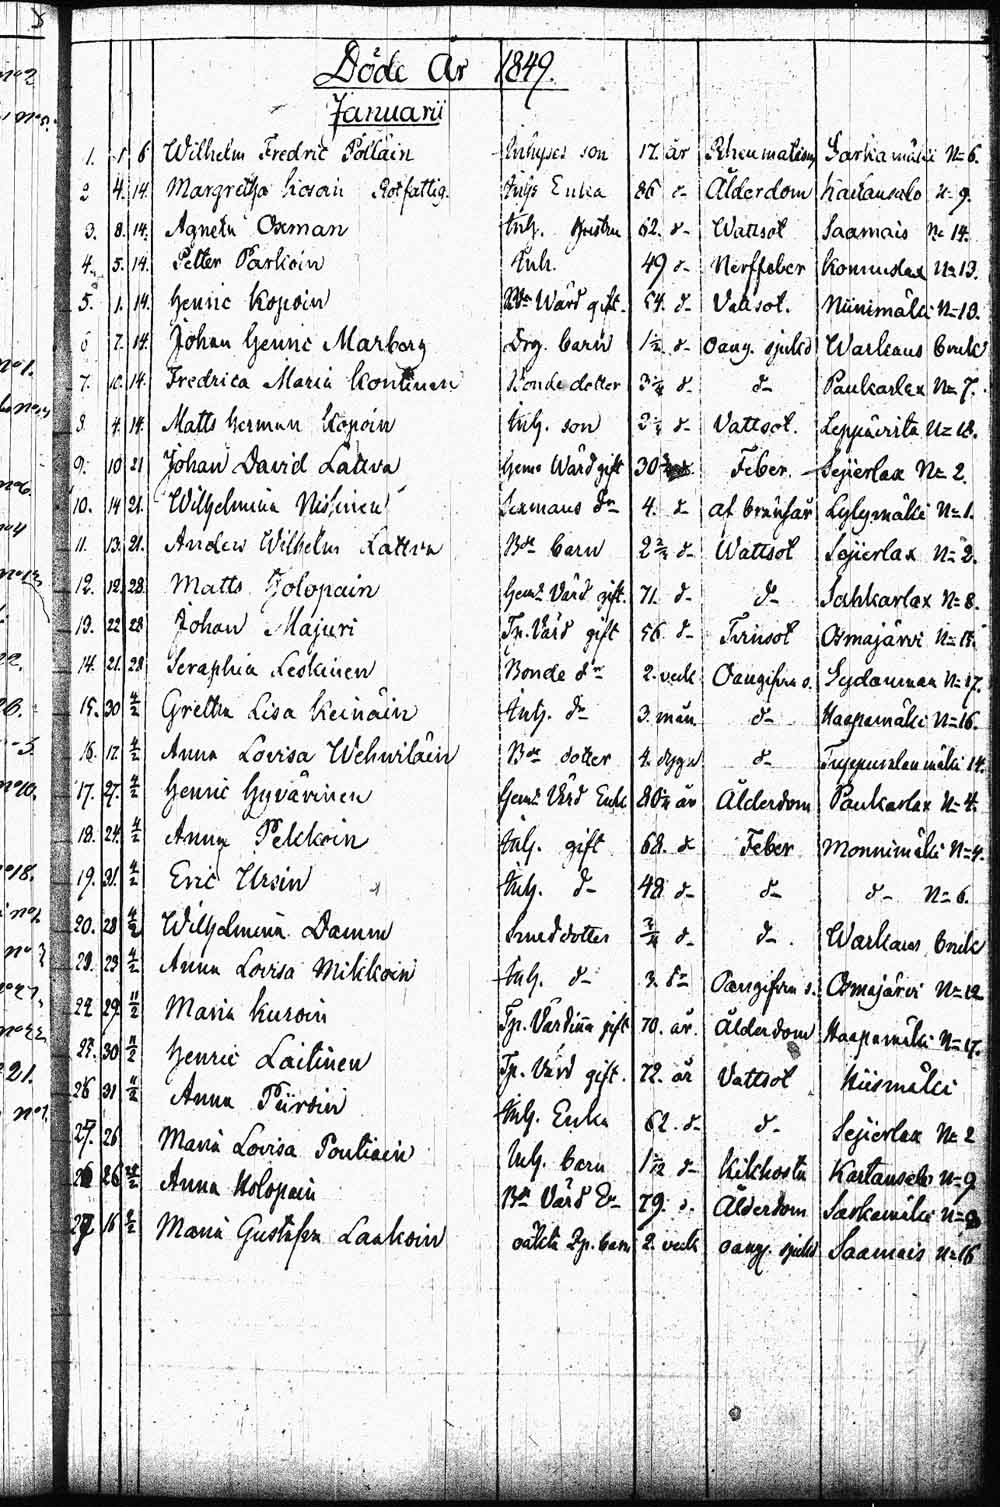 Döde År 1849.
Januarii
1. 1 6 Wilhelm Fredric Pöiläin Inhyses son 17. år Rheumatism Sarkamäki N=6.
2 4. 14. Margretha Rotfattig. Inhs Enka 86 d- Ålderdom Kartansalo N- 9.
3. 8. 14. Agneta Oxman Inh. 62. d- Wattsot Saamais N= 14.
4. 5. 14. Petter Parkoin Inh. 49 d- Nerffeber Konnuslax N=13.
5. 1. 14. Henric Kopoin Bde Wärd gift. 54. d- Vattsot. Niinimäki N=18.
6 7. 14. Johan Henric Marberg Drg. barn 1½ d- oang. sjukd Warkaus bruk
7. 10. 14. Fredrica Maria Kontinen Bonde dotter 3¼ d- d- Paukarlax N= 7.
8. 4. 14. Matts Herman Kopoin Inh. son d- Vattsot. Leppävirta N=18.
9. 10 21 Johan David Lattva Hems Wärd gift 30 Feber. Sejierlax N= 2.
10. 14 21. Wilhelmina Nissinen Sexmans dr 4. d- af brånsår Lylymäki N=1.
11. 13. 21. Anders Wilhelm Lattva Bde barn 2 d- Wattsot Sejierlax N= 2.
12. 12. 28. Matts Jolopain Hems Värd gift. 71. d- d- Sahkarlax N= 8.
13. 22 28 Johan Majuri Tp. Värd gift 56. d- Tvinsot Osmajärvi N= 15.
14. 21. 28 Seraphia Leskinen Bonde dr 2. veck. Oangifven s. Sydanmaa N= 17.
15. 30 4/2 Gretha Lisa Keinäin Inh. d- 3. mån d- Haapamäki N=16.
16. 17. 4/2 Anna Lovisa Wehviläin Bde dotter 4. dygn d- 14.
17. 27. 4/2 Henric Hyvärinen Hems Värd Enkl 80¾ år Ålderdom Paukarlax N= 4.
18. 24. 4/2 Anna Pekkoin Inh. gift 68. d- Feber Monnimäki N=4.
19. 31. 4/2 Eric Ursin Inh. d- 48 d- d- d- N= 6.
20. 28 4/2 Wilhelmina Damm Smeddotter ¾ d- d- Warkaus bruk
28. 23 4/2 Anna Lovisa Mikkoin Inh. d- 3. dr Oangifven s. Osmajärvi N=12
22 29. 11/2 Maria Kuroin Tp. Värdinna gift 70. år. Ålderdom Haapamäki N=17.
25. 30 11/2 Henric Laitinen Tp. Värd gift. 72. år Vattsot Niismäki
26 31 11/2 Anna Piiroin Inh. Enka 62. d- d- Sejierlax N= 2
27. 26 Maria Lovisa Pontiain Inh. barn 1 d- Kikhosta Kartansalo N=9
26 26 Anna Holopain Bde Värd En 79. d. Ålderdom Sarkamäki N=
27 16 Maria Gustafva Laakoin oäkta Pp. barn 2. veck oang. sjukd Saamais N=16